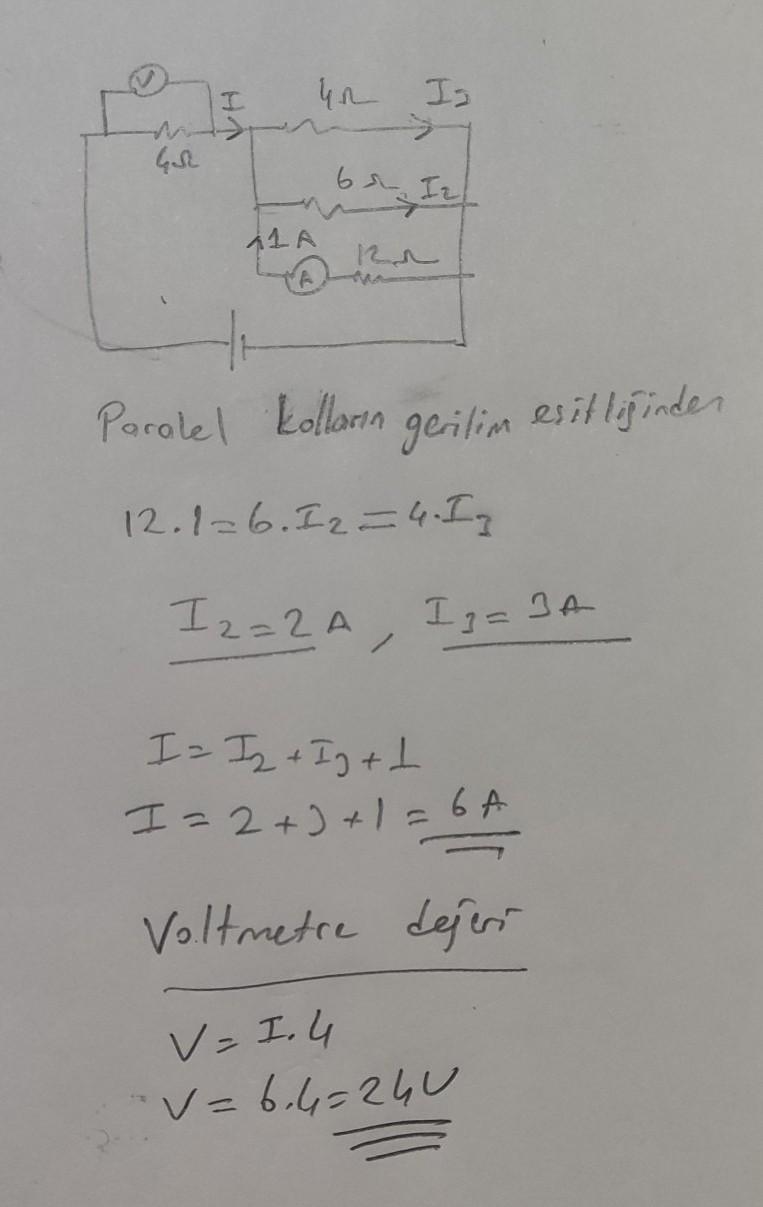 V
I 4Ω I3
4Ω
6Ω I2
1A 12Ω
A
Paralel kolların gerilim eşitliğinden
12.1=6.I2=4.I3
I2=2A, I3=3A
I=I2+I3+1
I=2+3+1=6A
Voltmetre değeri
V=I.4
V=6.4=24V